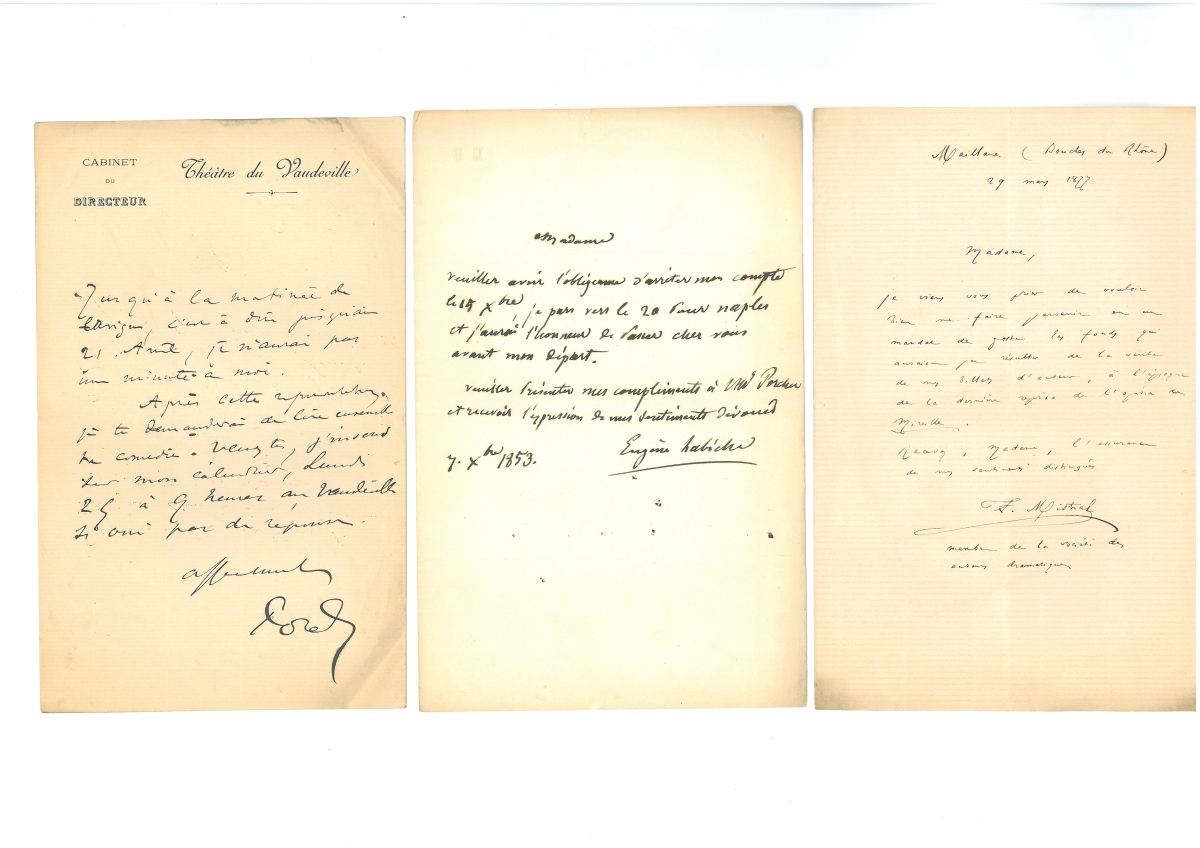 CABINET
DU
DIRECTEUR
Théâtre du Vaudeville
Jusqu'à la matinée de
c'est à dire jusqu'au
21 Avril, je n'aurai pas
une minute à moi.
Après cette représentation,
je te demanderai de lire ensemble
ta comédie. Veux-tu, j'inscris
sur mon calendrier, Lundi
25 à 9 heures au Vaudeville
si oui pas de réponse.
Porel
Madame
veuillez avoir l'obligeance d'arrêter mon compte
le 15 Xbre, je pars vers le 20 pour naples
et j'aurai l'honneur de passer chez vous
avant mon départ.
veuillez présenter mes compliments à Mr Porcher
et recevoir l'expression de mes sentiments dévoués
Eugène Labiche
7. Xbre 1853.
Maillane (Bouches du Rhône)
29 mars 1877
Madame,
je viens vous prier de vouloir
bien me faire parvenir en un
mandat de poste les fonds qui
auraient pu résulter de la vente
de mes billets d'auteur, à l'époque
de la dernière reprise de l'opéra de
Mireille.
Recevez, Madame, l'assurance
de mes sentiments distingués
F. Mistral
membre de la société des
auteurs dramatiques